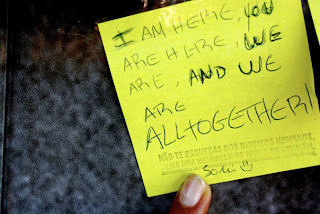 I AM HERE, YOU
ARE HERE, WE
ARE, AND WE
ARE
ALLTOGETHER!
NÃO TE ESQUEÇAS DOS DIREITOS HUMANOS,
UMA MENSAGEM
Sofi